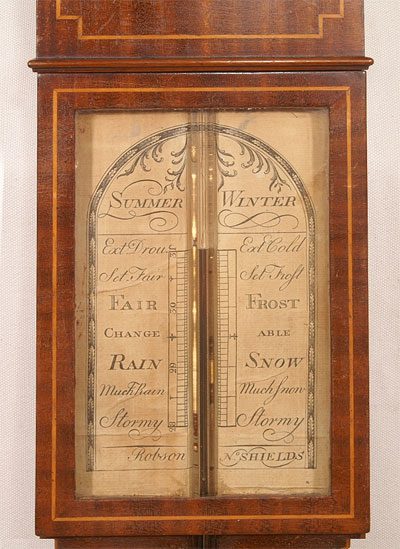 SUMMER WINTER
Ext Drou. Ext Cold
Set Fair Set Frost
FAIR FROST
30
CHANGE ABLE
29
RAIN SNOW
Much Rain Much Snow
Stormy Stormy
28
Robson No. SHIELDS